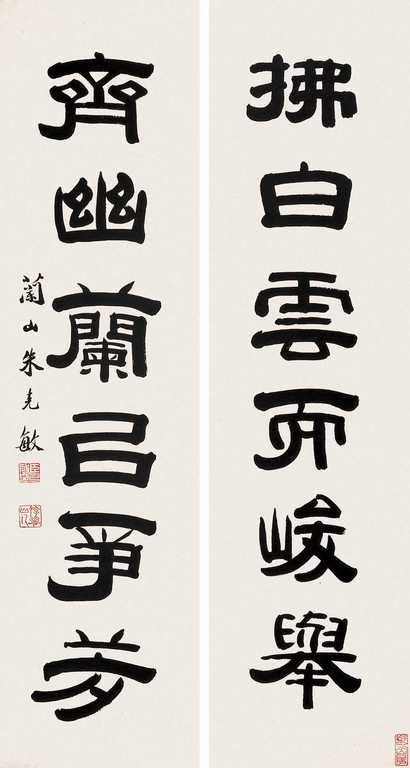 拂白雲而峻舉
齊幽蘭㠯爭芬
蘭山朱克敏